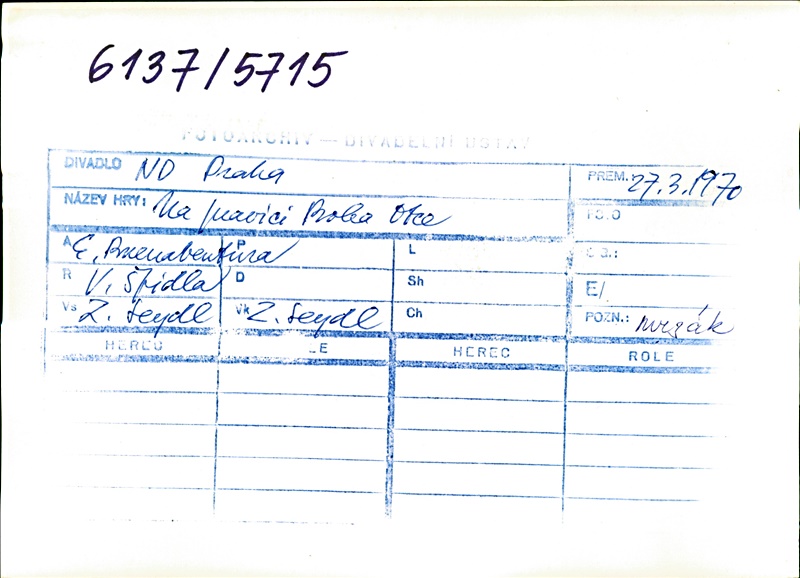 6137/5715
FOTOARCHIV — DIVADELNÍ ÚSTAV
DIVADLO ND Praha PREM.: 27.3.1970
NÁZEV HRY: Na pravici Boha Otce
A E. Buenabentura P L
R V. Špidla D Sh E/
Vs Z. Seydl Vk Z. Seydl Ch POZN.: mrzák
HEREC LE HEREC ROLE